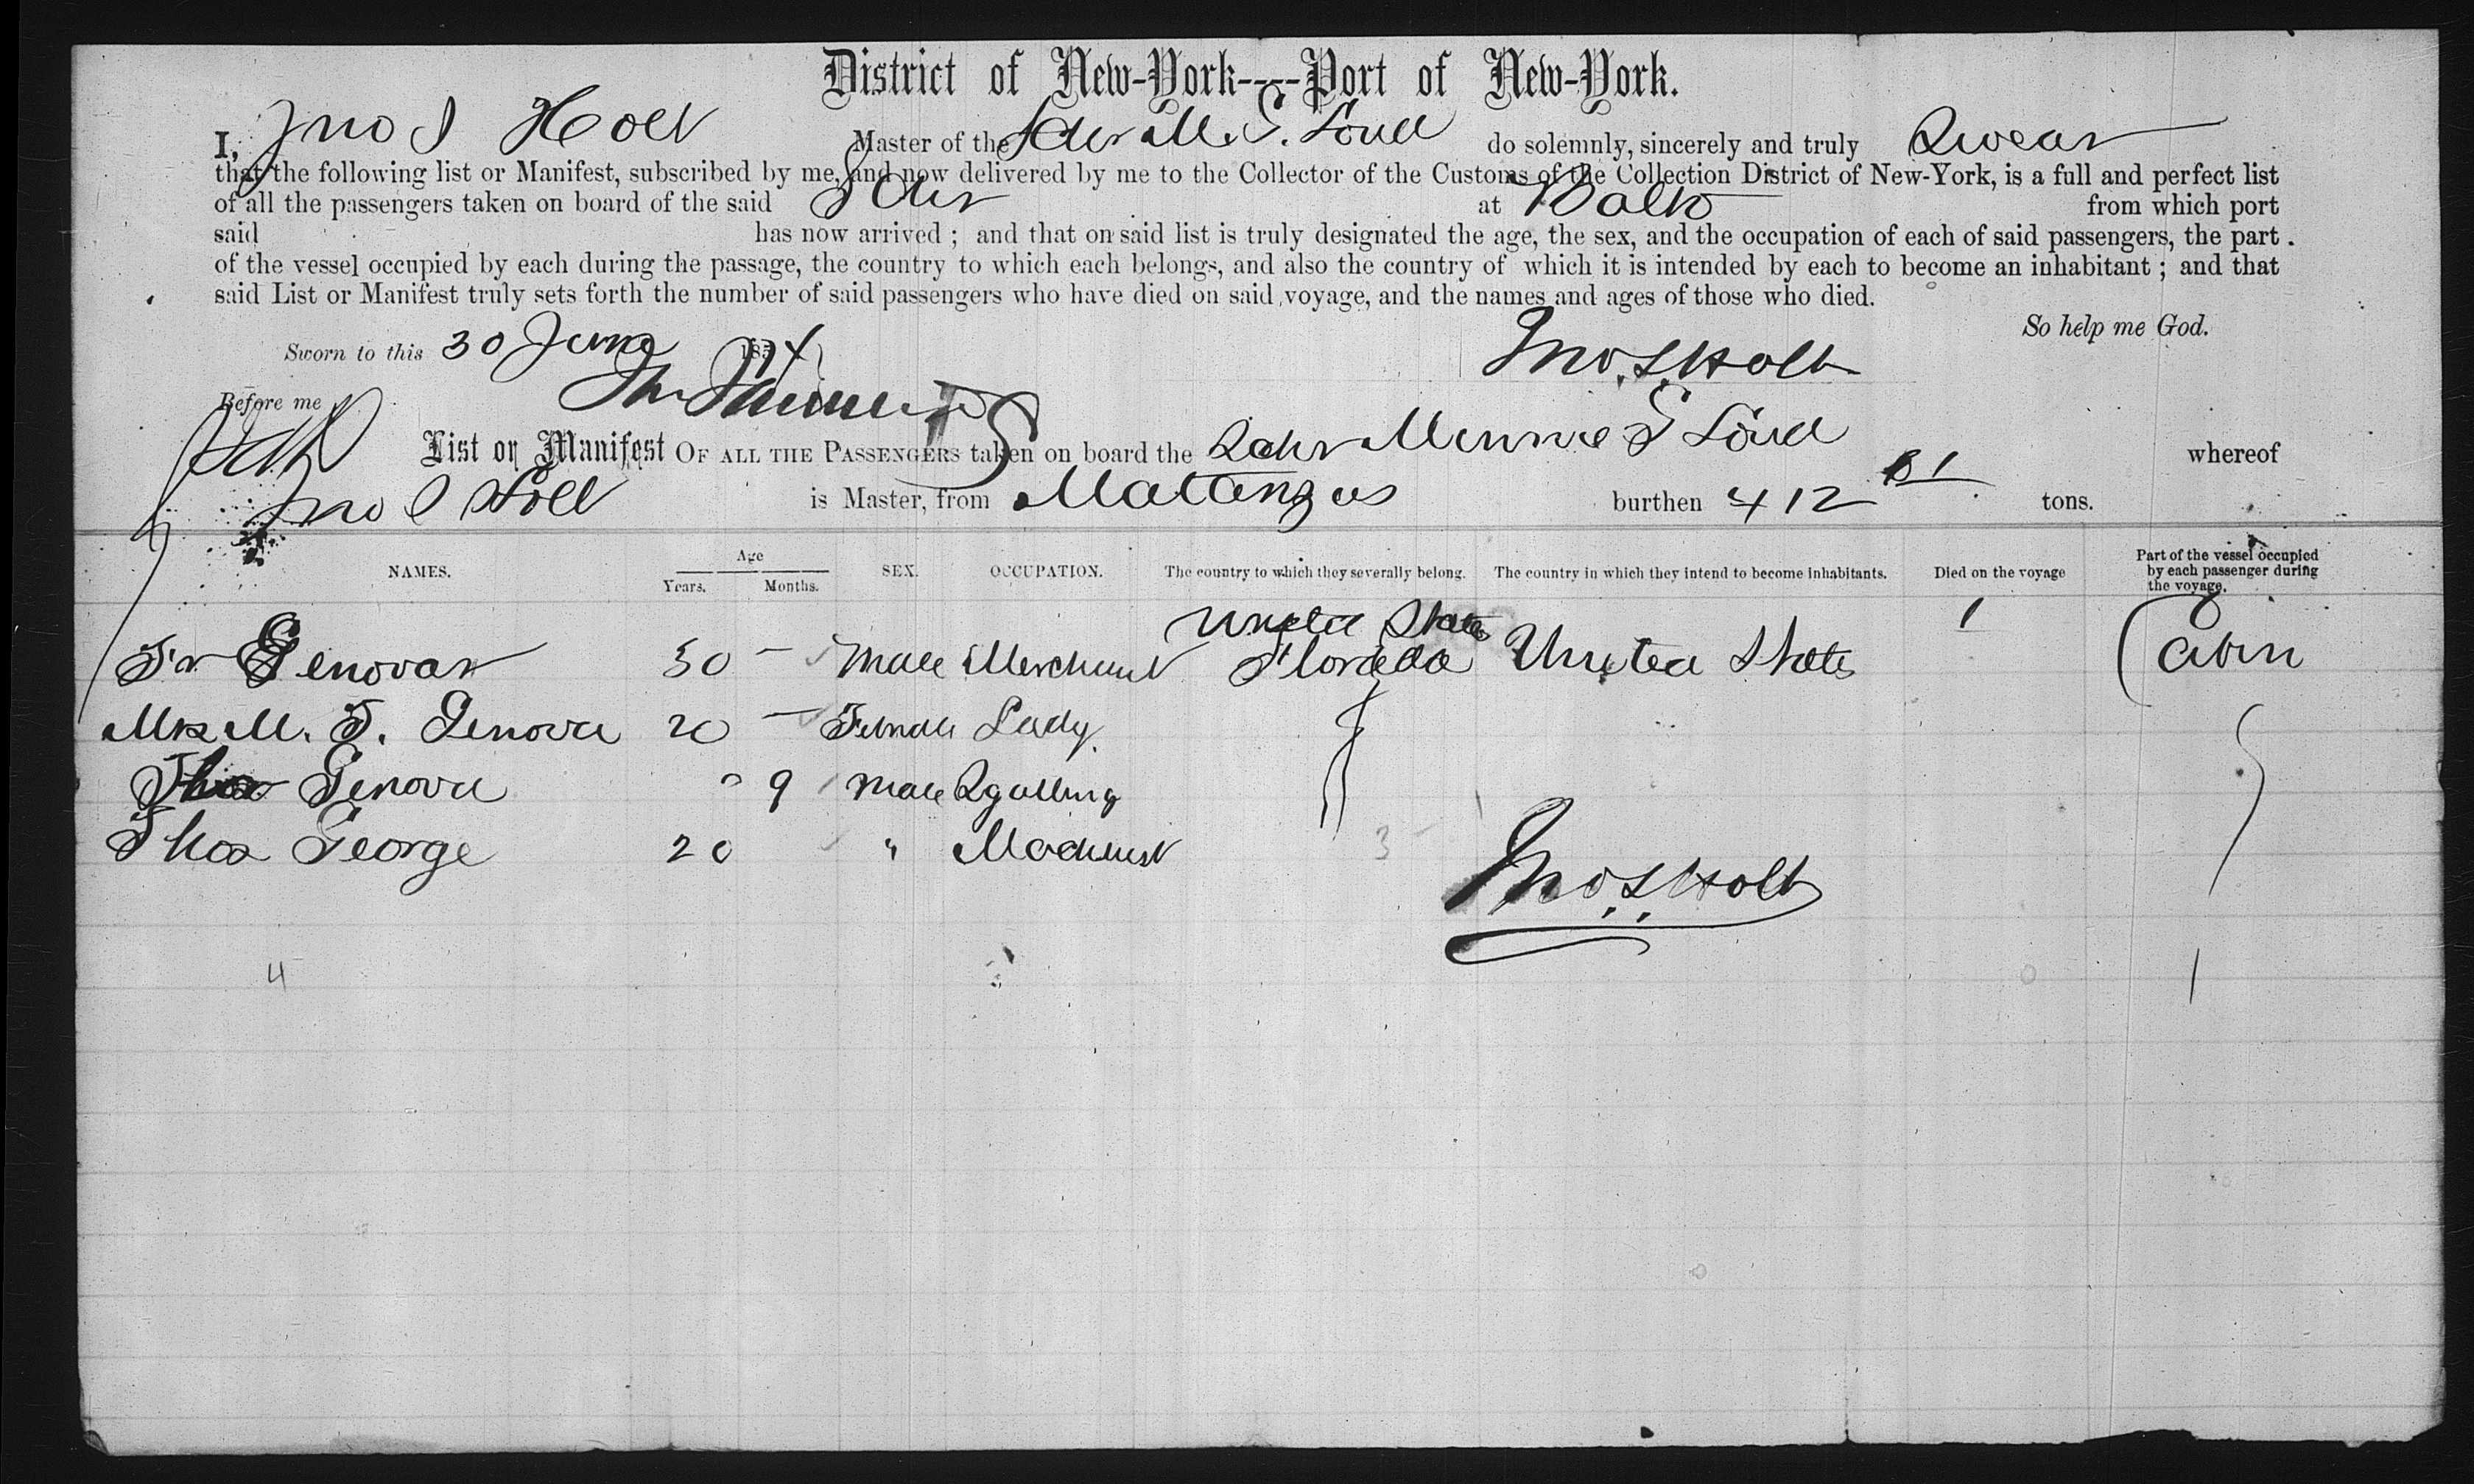 District of New-York----Port of New-York.
I, Jno S Holt Master of the Schr M. S. Loud do solemnly, sincerely and truly Swear
that the following list or Manifest, subscribed by me, and now delivered by me to the Collector of the Customs of the Collection District of New-York, is a full and perfect list
of all the passengers taken on board of the said Schr at from which port
said has now arrived ; and that on said list is truly designated the age, the sex, and the occupation of each of said passengers, the part
of the vessel occupied by each during the passage, the country to which each belongs, and also the country of which it is intended by each to become an inhabitant ; and that
said List or Manifest truly sets forth the number of said passengers who have died on said voyage, and the names and ages of those who died.
So help me God.
Sworn to this 30 June 1874
Jno. S Holt
Before me
List or Manifest OF ALL THE PASSENGERS taken on board the Schr Minnie S Loud whereof
Jno S Holt is Master, from Matanzas burthen 412 81 tons.
NAMES. Age Years. Months. SEX. OCCUPATION. The country to which they severally belong. The country in which they intend to become inhabitants. Died on the voyage Part of the vessel occupied by each passenger during the voyage.
United States
Fr Genovar 30 — Male Merchant Floreda United States Cabin
Mrs M. F. Genova 20 — Female Lady
Genova " 9 Male
Thos George 20 " Machinist
3
Jno. S Holt
4 0